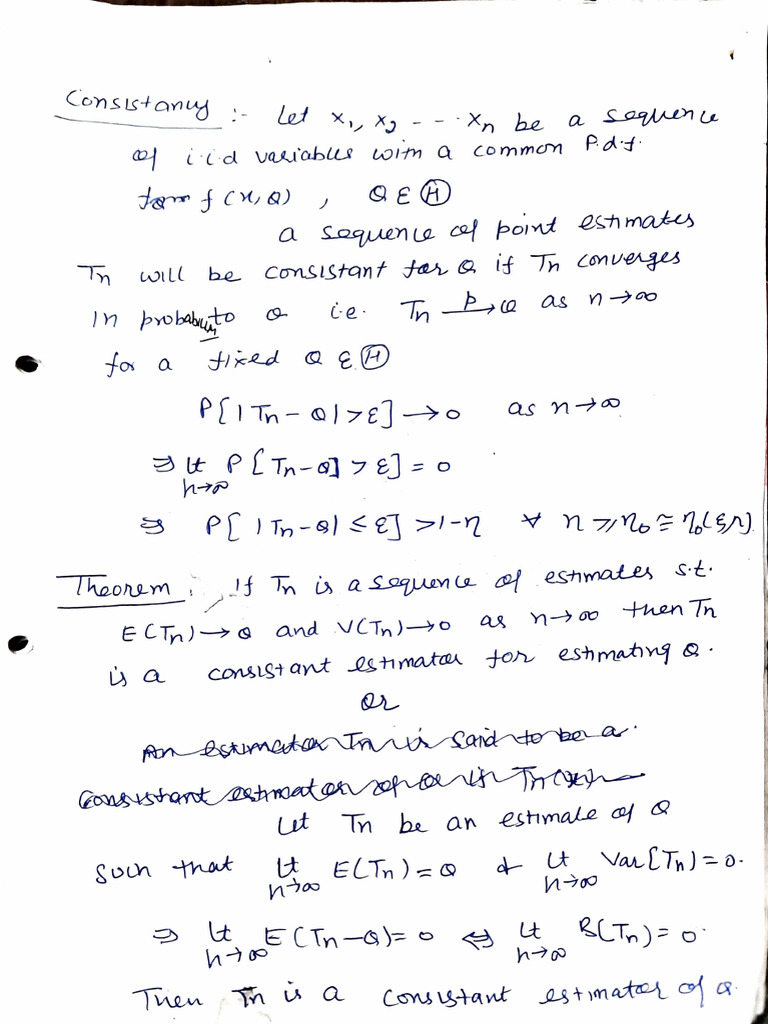 Consistancy :- Let x₁, x₂ - - · xn be a sequence
of i.i.d variables with a common P.d.f.
form f(x, θ) , θ ∈ Ⓗ
a sequence of point estimates
Tn will be consistant for θ if Tn converges
in probability to θ i.e. Tn →ᵖ θ as n→∞
for a fixed θ ∈ Ⓗ
P[|Tn - θ| > ε] → 0 as n→∞
⇒ lt n→∞ P[Tn-θ] > ε] = 0
⇒ P[|Tn-θ| ≤ ε] > 1-η ∀ n ≥ n₀ ≅ n₀(ε,η)
Theorem : If Tn is a sequence of estimates s.t.
E(Tn) → θ and V(Tn) → 0 as n→∞ then Tn
is a consistant estimator for estimating θ.
or
An estimator Tn is said to be a
Consistant estimator of θ if Tn
Let Tn be an estimate of θ
such that lt n→∞ E(Tn) = θ & lt n→∞ Var[Tn) = 0.
⇒ lt n→∞ E(Tn-θ) = 0 ⇔ lt n→∞ B(Tn) = 0.
Then Tn is a consistant estimator of θ.